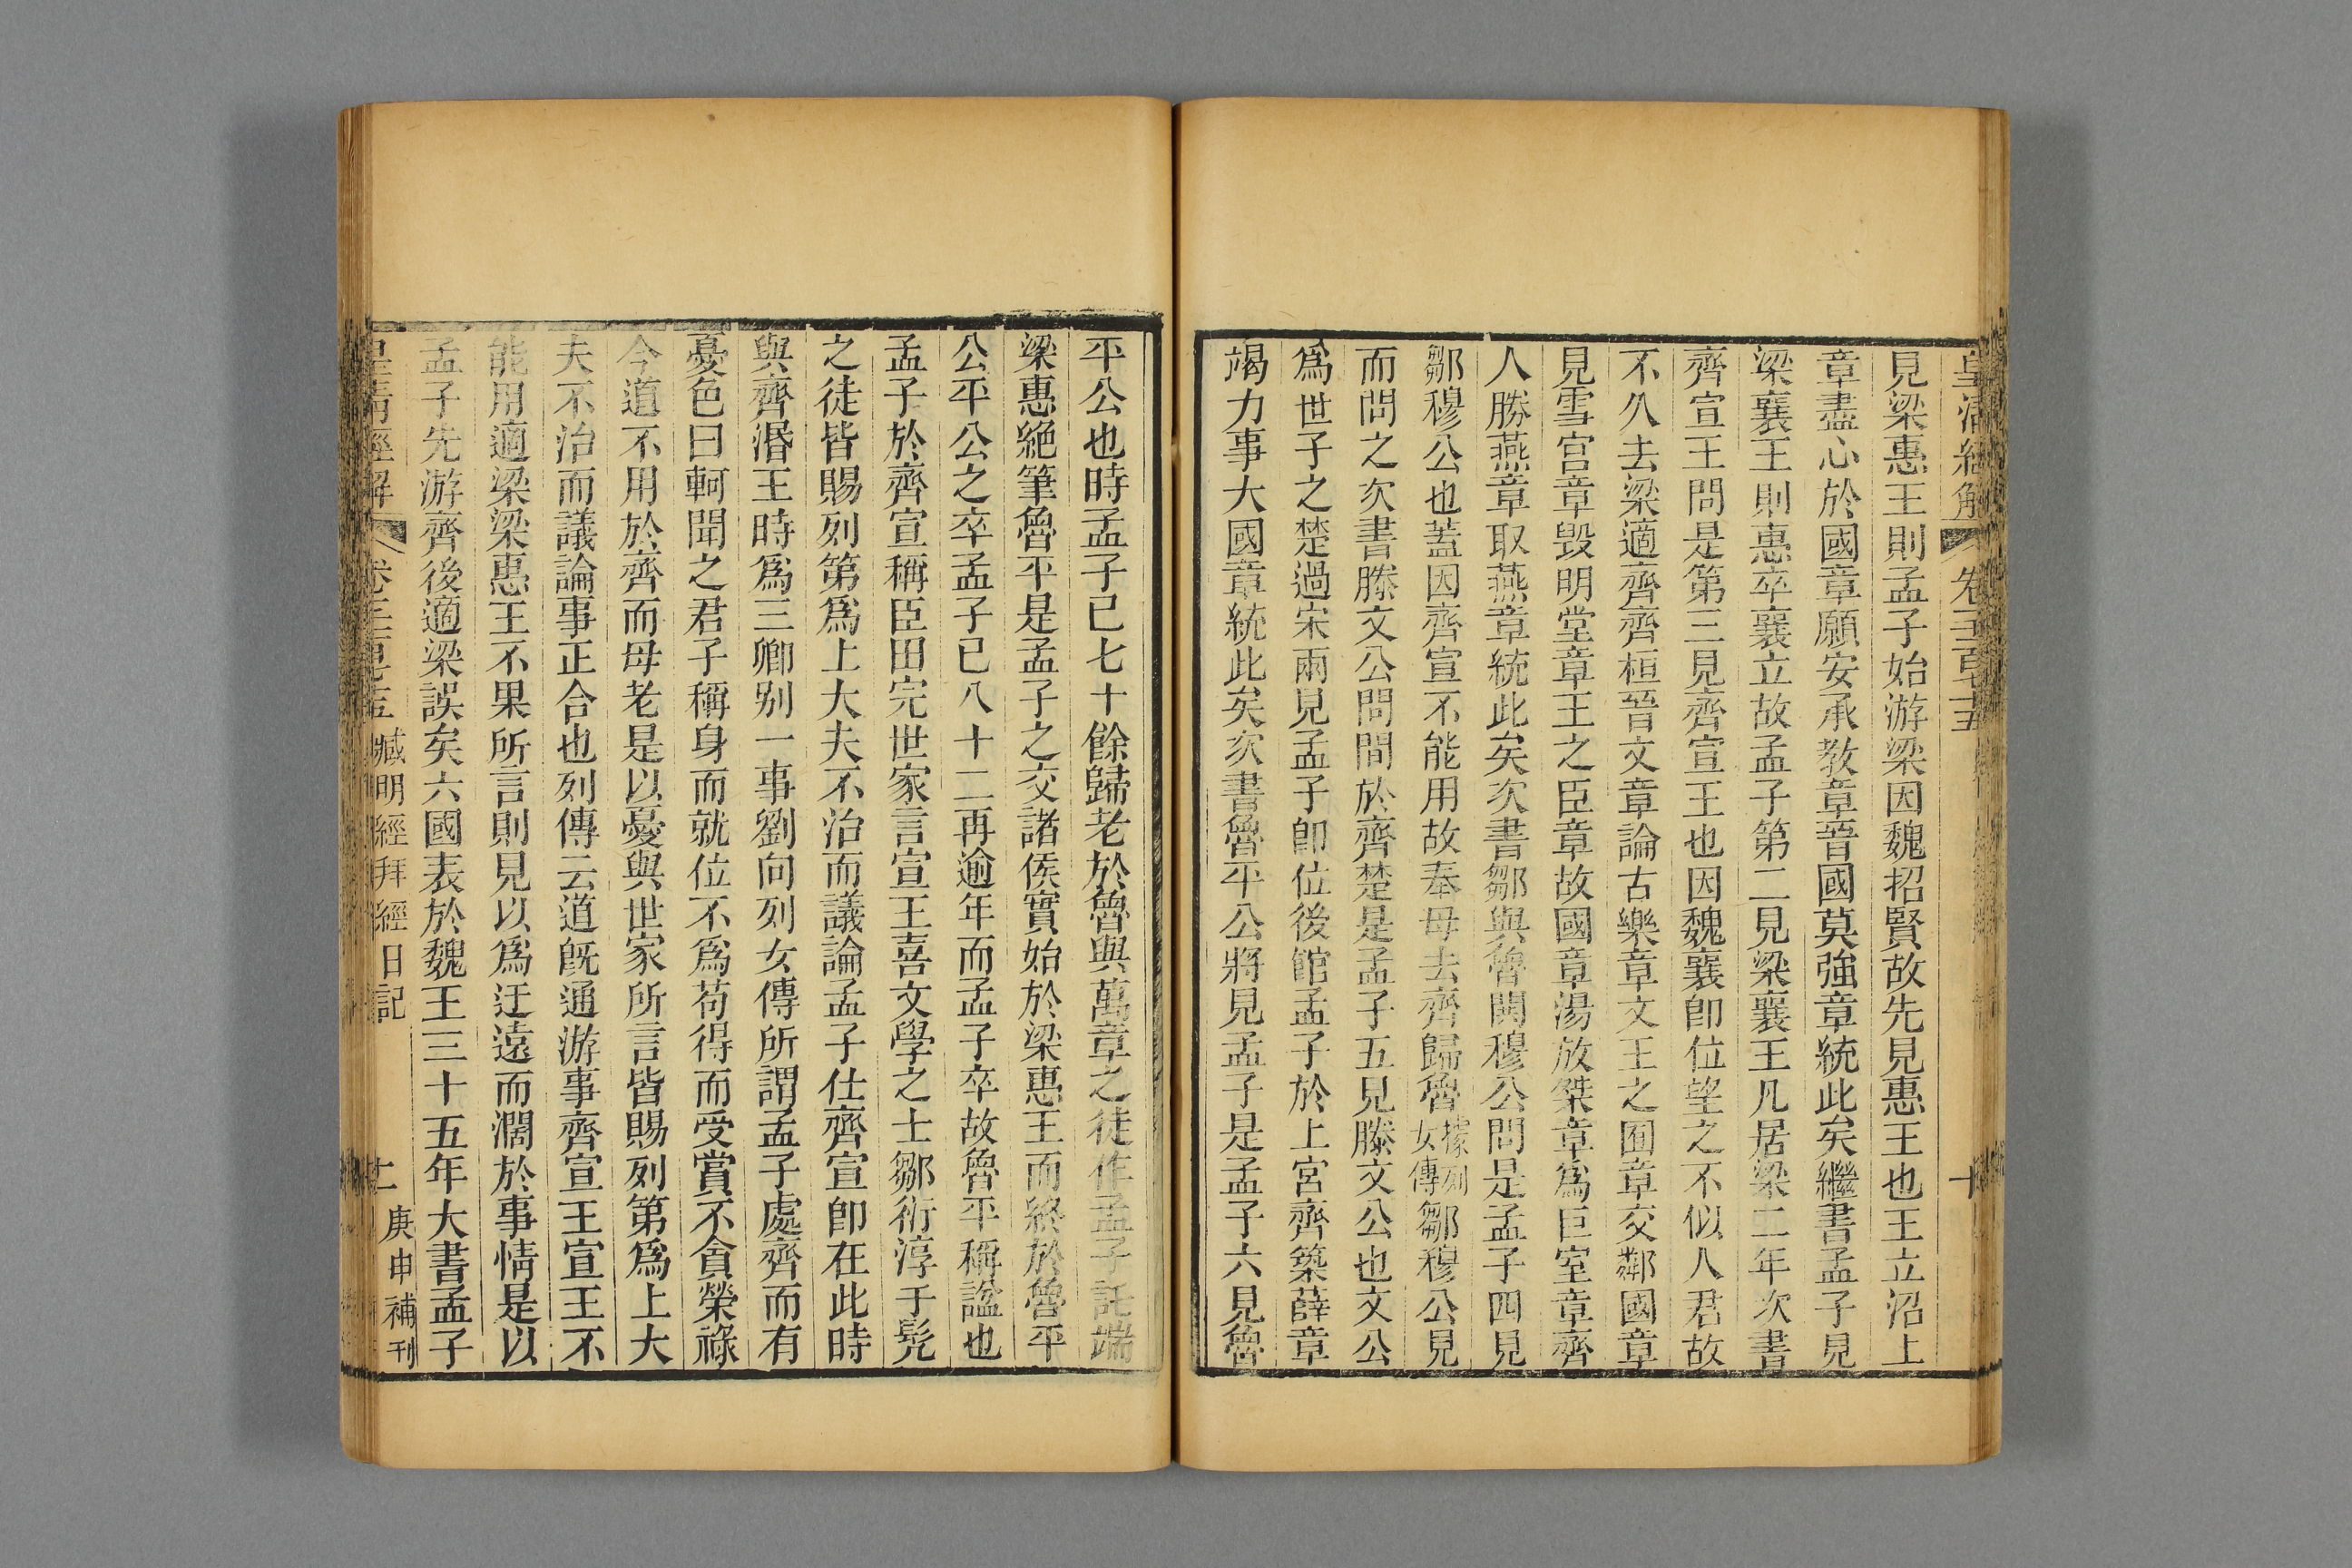 皇清經解
卷
十
見梁惠王則孟子始游梁因魏招賢故先見惠王也王立沼上
章盡心於國章願安承教章晉國莫強章統此矣繼書孟子見
梁襄王則惠卒襄立故孟子第二見梁襄王凡居梁二年次書
齊宣王問是第三見齊宣王也因魏襄卽位望之不似人君故
不久去梁適齊齊桓晉文章論古樂章文王之囿章交鄰國章
見雪宮章毀明堂章王之臣章故國章湯放桀章爲巨室章齊
人勝燕章取燕章統此矣次書鄒與魯鬨穆公問是孟子四見
鄒穆公也蓋因齊宣不能用故奉母去齊歸魯據列女傳鄒穆公見
而問之次書滕文公問間於齊楚是孟子五見滕文公也文公
爲世子之楚過宋兩見孟子卽位後館孟子於上宮齊築薛章
竭力事大國章統此矣次書魯平公將見孟子是孟子六見魯
平公也時孟子已七十餘歸老於魯與萬章之徒作孟子託端
梁惠絕筆魯平是孟子之交諸侯實始於梁惠王而終於魯平
公平公之卒孟子已八十二再逾年而孟子卒故魯平稱諡也
孟子於齊宣稱臣田完世家言宣王喜文學之士鄒衍淳于髡
之徒皆賜列第爲上大夫不治而議論孟子仕齊宣卽在此時
與齊湣王時爲三卿別一事劉向列女傳所謂孟子處齊而有
憂色曰軻聞之君子稱身而就位不爲苟得而受賞不貪榮祿
今道不用於齊而母老是以憂與世家所言皆賜列第爲上大
夫不治而議論事正合也列傳云道旣通游事齊宣王宣王不
能用適梁梁惠王不果所言則見以爲迂遠而濶於事情是以
孟子先游齊後適梁誤矣六國表於魏王三十五年大書孟子
皇清經解
臧明經拜經日記
十一
庚申補刊